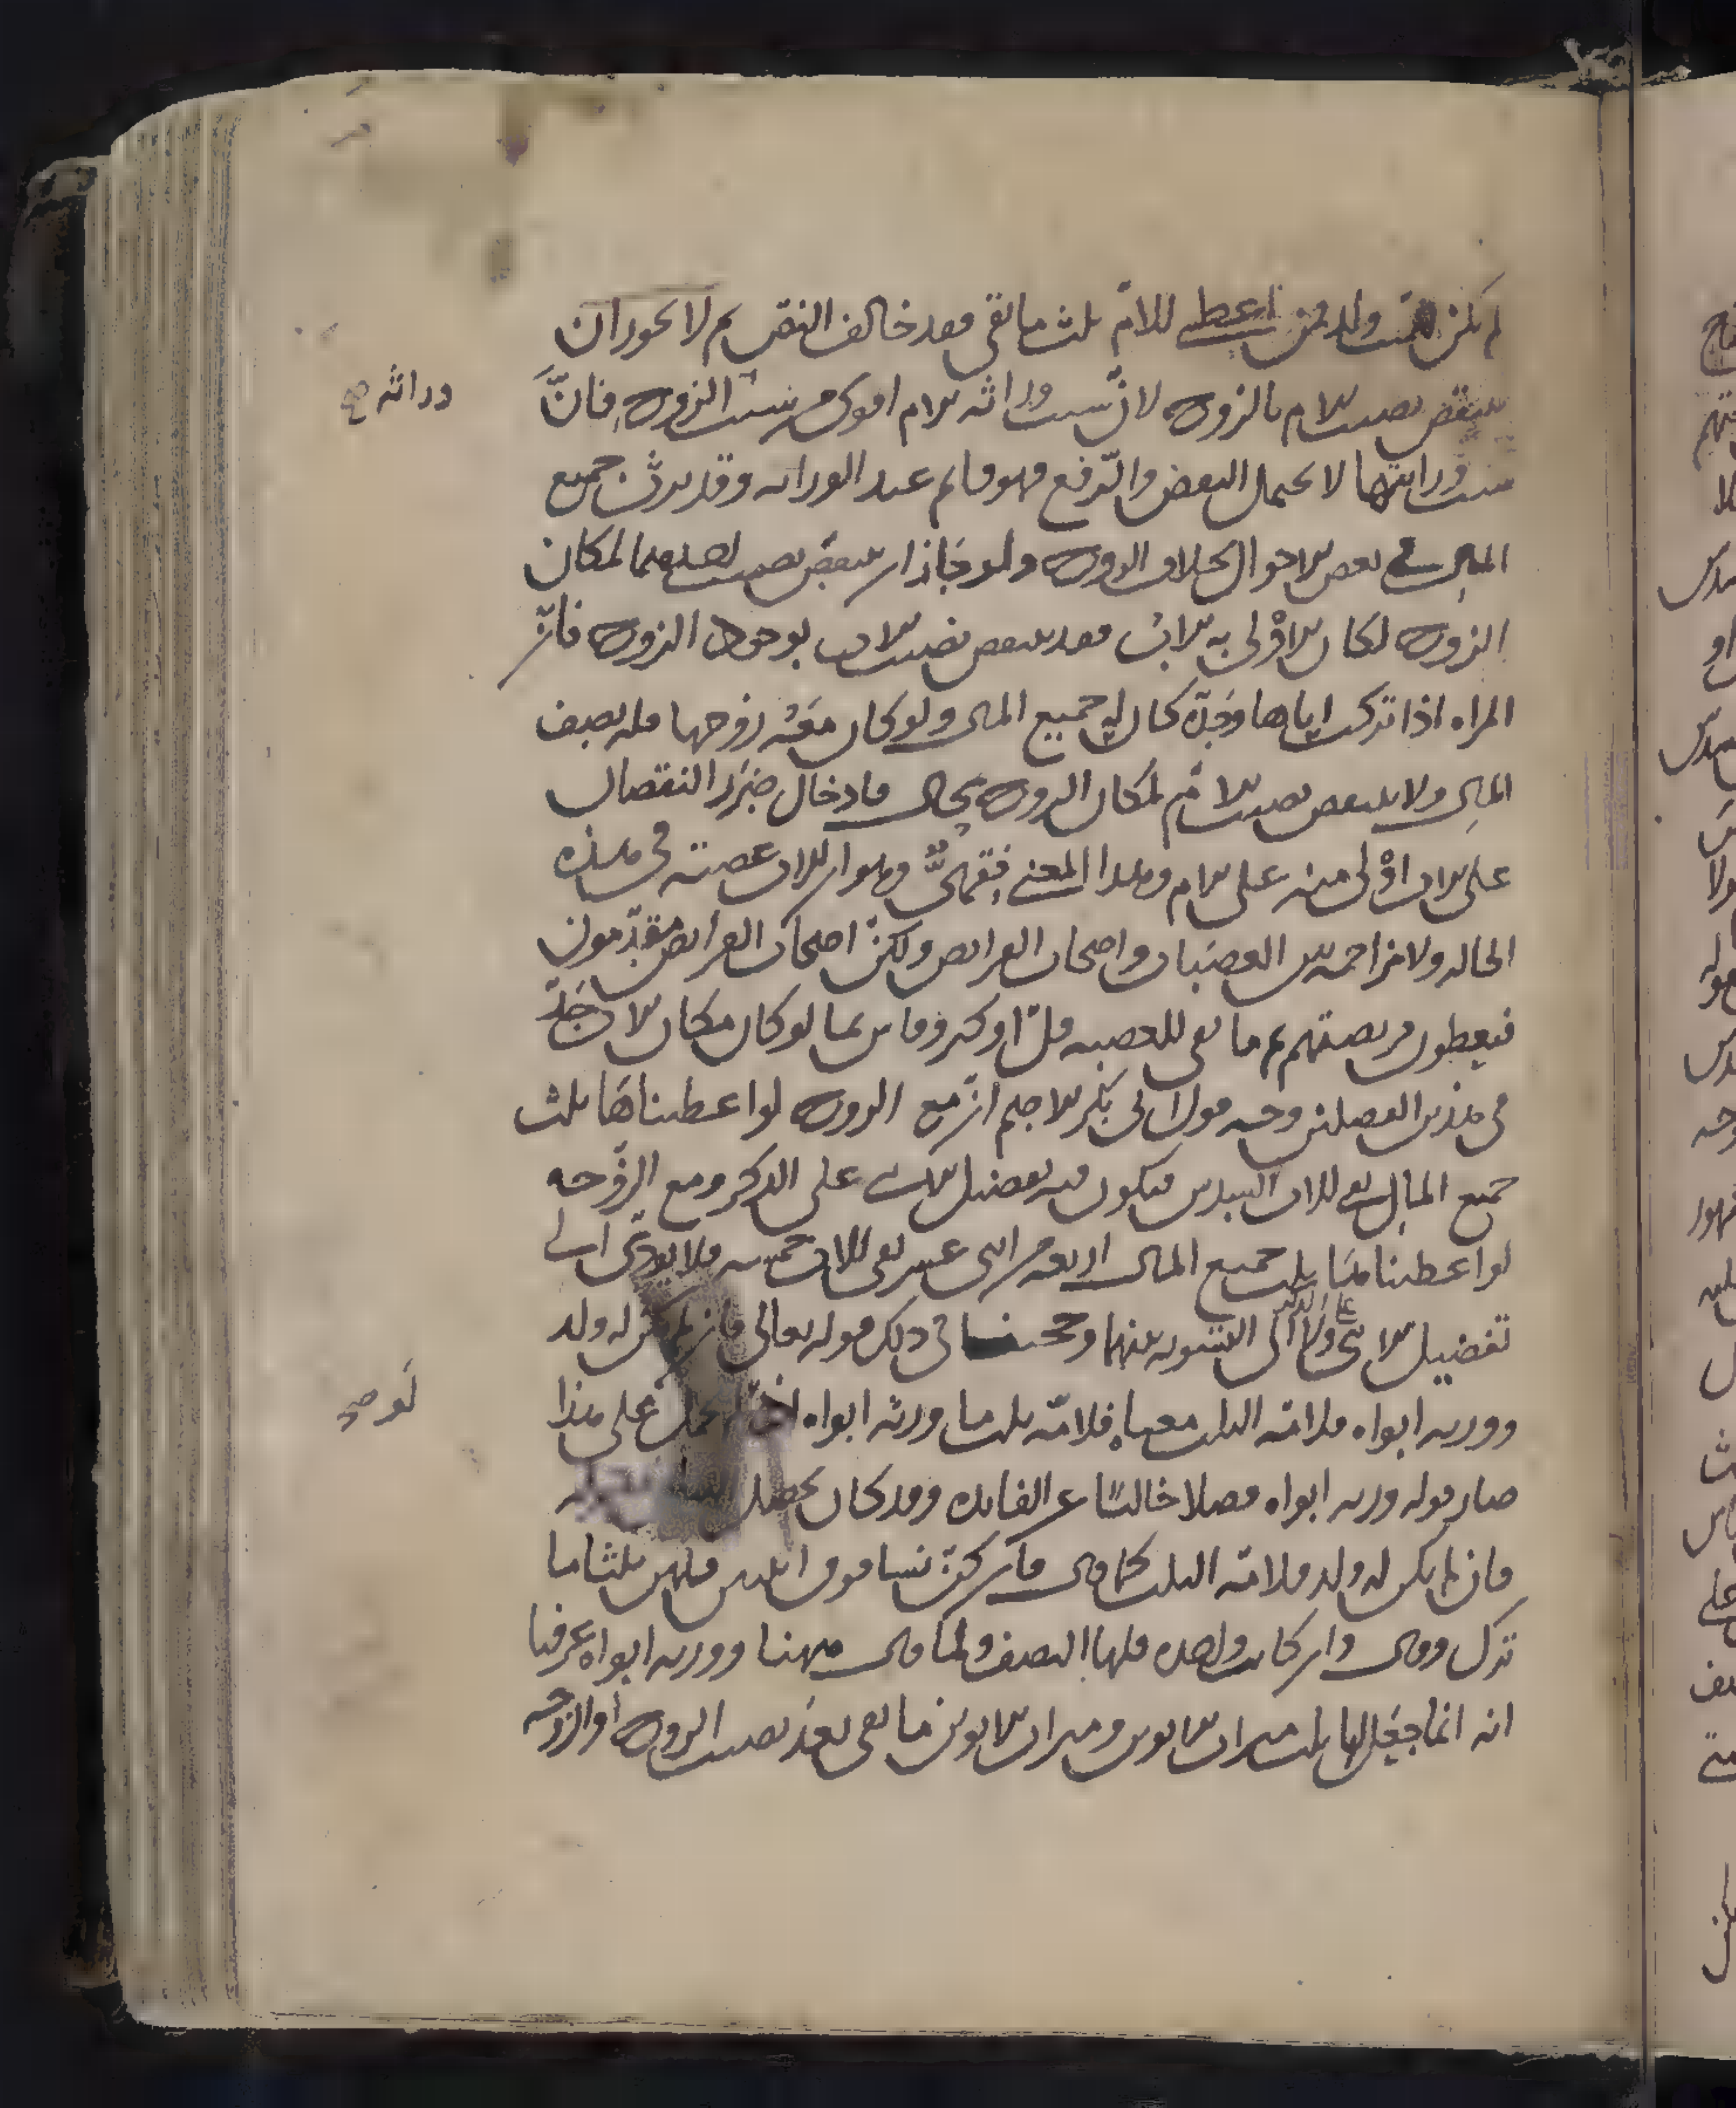 لم يكن للميت ولد فمن اعطى للام ثلث ما بقى فقد خالف النص ثم لا يجوز ان
ينتقص نصيب الام بالزوج لان سبب وراثة الام اقوى من سبب الزوج فانّ
سبب وراثتها لا يحتمل النقض والرفع فهو قائم عند الوراثة وقد يرث جميع
المال فى بعض الاحوال بخلاف الزوج ولو جاز ان ينتقص نصيب احدهما لمكان
الزوج لكان الاولى به الاب فقد ينتقص نصيب الاب بوجود الزوج فانّ
المراة اذا تركت اباها وحده كان له جميع المال ولو كان معه زوجها فله نصف
المال ولا ينتقص نصيب الام لمكان الزوج بحال فادخال ضرر النقصان
على الاب اولى منه على الام وهذا المعنى فقهىّ وهو ان للاب عصبة فى هذه
الحالة ولا مزاحمة بين العصبات واصحاب الفرايض ولكن اصحاب الفرايض مقدّمون
فيعطون فريضتهم ثم ما بقى للعصبة قلّ او كثر وقاس بما لو كان مكان الاب جدّ
فى هذين الفصلين وجه قول ابى بكر الاصم ان مع الزوج لو اعطيناها ثلث
جميع المال بقى للاب السدس فيكون فيه تفضيل الانثى على الذكر ومع الزوجة
لو اعطيناها ثلث جميع المال اربعة من اثنى عشر بقى للاب خمسة فلا يؤدى الى
تفضيل الانثى على الذكر ولا الى التسوية بينهما وحجتنا فى ذلك قوله تعالى فان لم يكن له ولد
وورثه ابواه فلامه الثلث معناه فلامّه ثلث ما ورثه ابواه على هذا
صار قوله وورثه ابواه فصلا خاليًا عن الفائدة وقد كان يحصل
فان لم يكن له ولد فلامه الثلث كما قال فان كنّ نساء فوق اثنتين فلهن ثلثا ما
ترك وقال وان كانت واحدة فلها النصف ولما قال ههنا وورثه ابواه عرفنا
انه انما جعل لها ثلث ميراث الابوين وميراث الابوين ما بقى بعد نصيب الزوج او الزوجة
وراثة صح